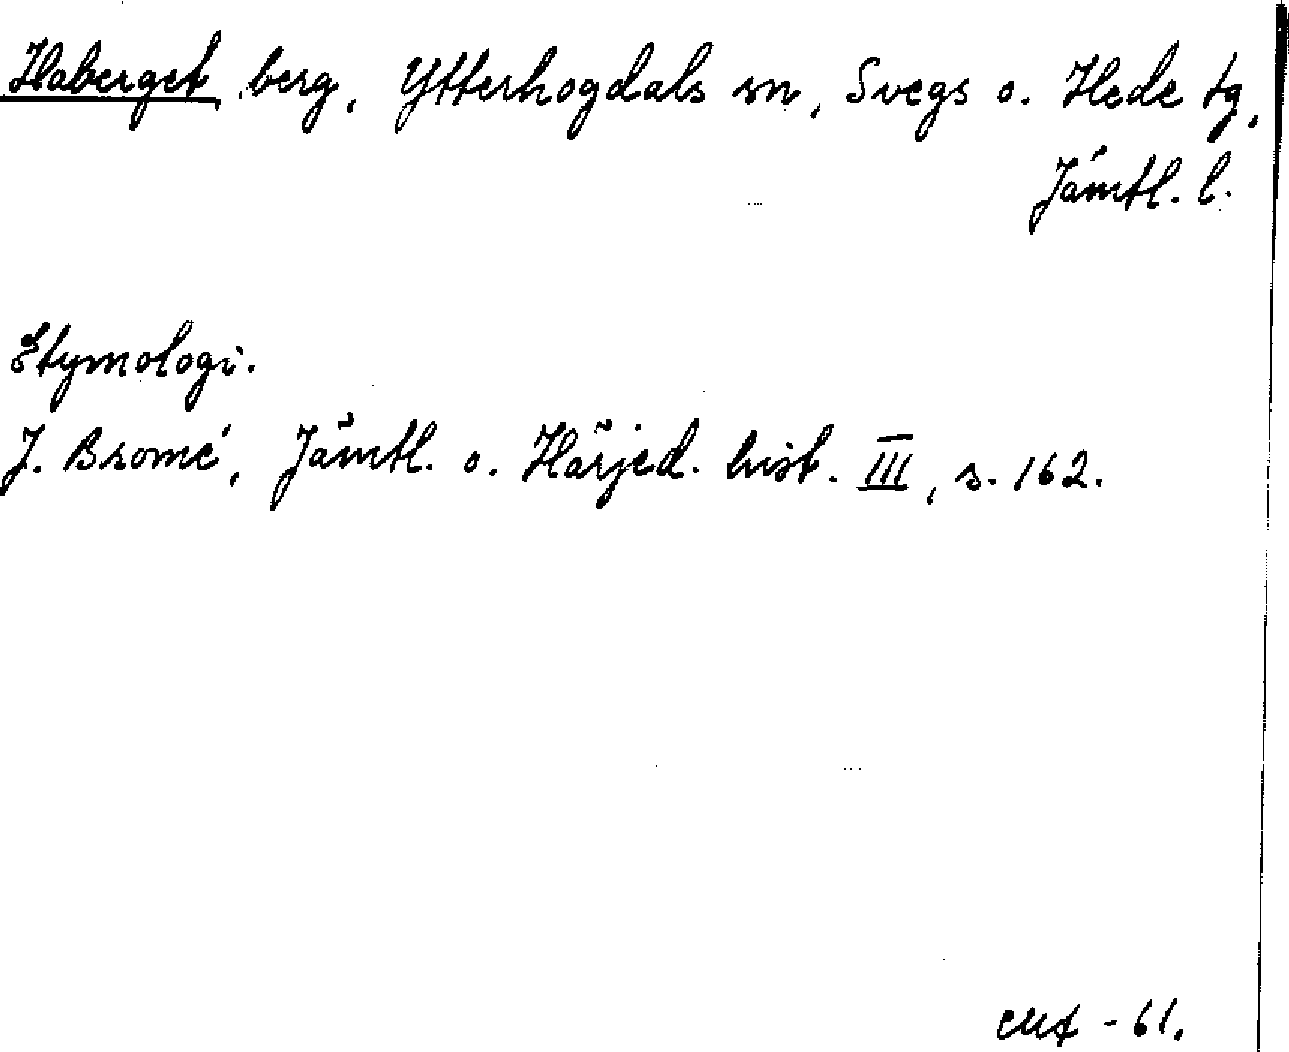 Haberget, berg, Ytterhogdals sn, Svegs o. Hede tg,
Jämtl. l.
Etymologi.
J. Bromé, Jämtl. o. Härjed. hist. III, s. 162.
-61.